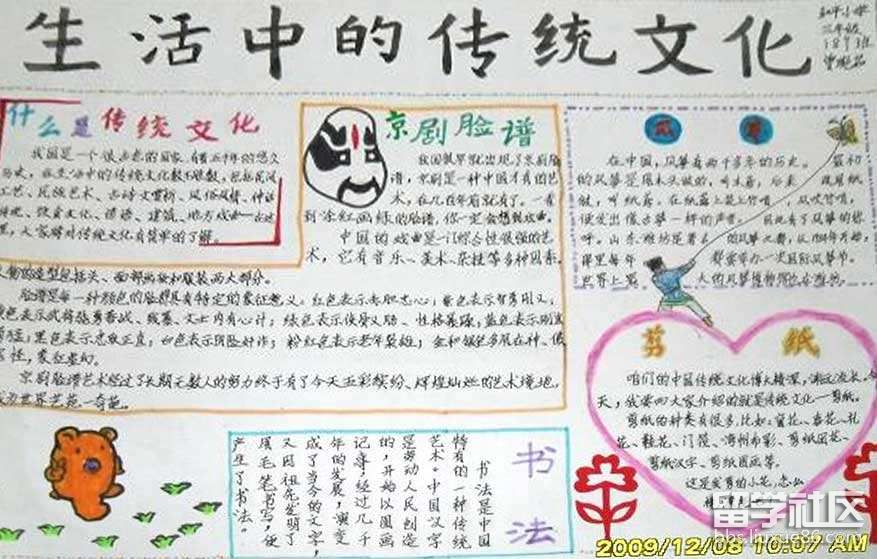 生活中的传统文化
和平小学
三年级
189班
什么是传统文化
我国是一个很古老的国家,有着五千年的悠久
历史,在生活中的传统文化数不胜数,
工艺、民族艺术、古诗文赏析、风俗风情、神话
饮食文化、谚语、建筑、地方戏曲
里,大家将对传统文化有简单的了解。
京剧脸谱
我国很早就出现了京剧脸
谱,京剧是一种中国才有的艺
术,在几百年前就有了。一看
到涂红画绿的脸谱,你一定会想到戏曲。
中国的戏曲是一门综合性很强的艺
术,它有音乐、美术、杂技等多种因素。
人物的造型包括头、面部画妆和服装两大部分。
脸谱是每一种颜色的脸都具有特定的象征意义:红色表示赤胆忠心;紫色表示智勇刚义,
黑色表示忠敢正直;白色表示阴险奸诈;粉红色表示老年
京剧脸谱艺术经过了长期无数人的努力终于有了今天五彩缤纷、辉煌灿烂的艺术境地,
世界艺苑一奇葩。
风筝
在中国,风筝有两千多年的历史。最初
的风筝是用木头做的,叫木鸢,后来
做,叫纸鸢。在纸鸢上装上竹哨,风吹竹哨,
便发出像古筝一样的声音,因此有了风筝的称
呼。山东潍坊是著名的风筝之都,从1984年开始,
那里每年都要举办一次国际风筝节。
剪纸
咱们的中国传统文化博大精深,渊远流长。今
天,我要向大家介绍的就是传统文化—剪纸。
剪纸的种类有很多,比如:窗花、喜花、礼
花、鞋花、门笺、剪纸团花、
剪纸汉字、剪纸图画等。
这是我剪的小花,怎么
书法
书法是中国
特有的一种传统
艺术。中国汉字
是劳动人民创造
的,开始以图画
记事,经过几千
年的发展,演变
成了当今的文字,
又因祖先发明了
用毛笔书写,便
产生了书法。
留学社区
bbs.liuxue86.com
2009/12/08 10:07 AM